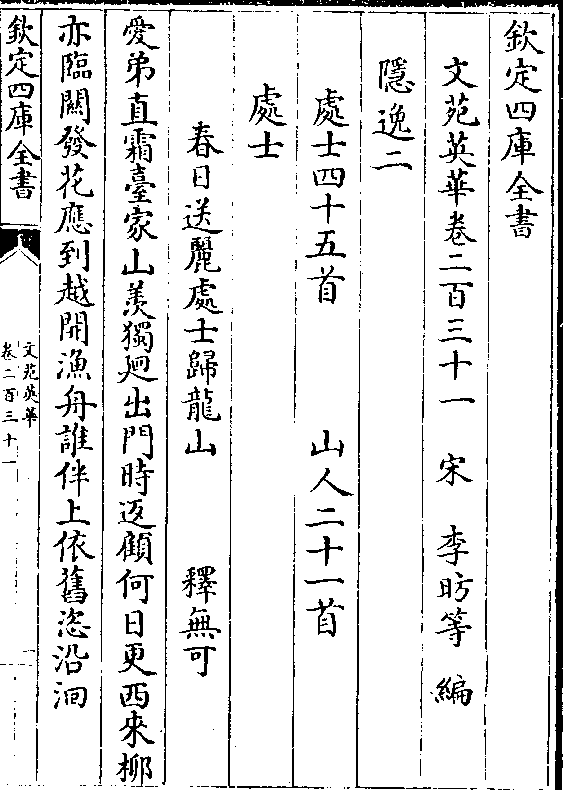 欽定四庫全書
文苑英華卷二百三十一　宋　李昉等　編
隱逸二
處士四十五首　山人二十一首
處士
春日送麗處士歸龍山　釋無可
愛弟直霜臺家山羨獨廻出門時返顧何日更西來柳
亦臨闗發花應到越開漁舟誰伴上依舊恣沿洄
欽定四庫全書
文苑英華
卷二百三十一